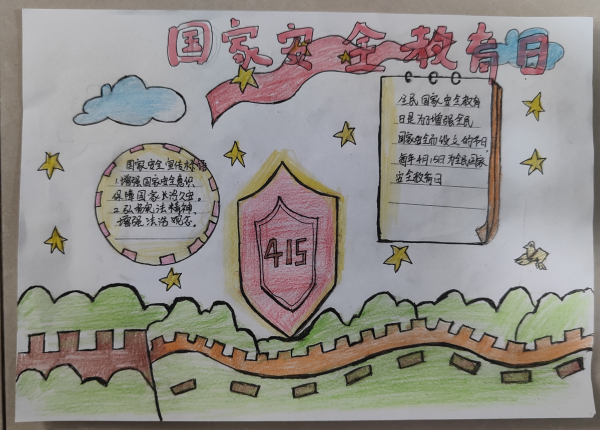 国家安全教育日
国家安全宣传标语
1.增强国家安全意识,
保障国家长治久安。
2.弘扬宪法精神,
增强法治观念。
415
全民国家安全教育
日是为了增强全民
国家安全而设立的节日,
每年4月15日为全民国家
安全教育日